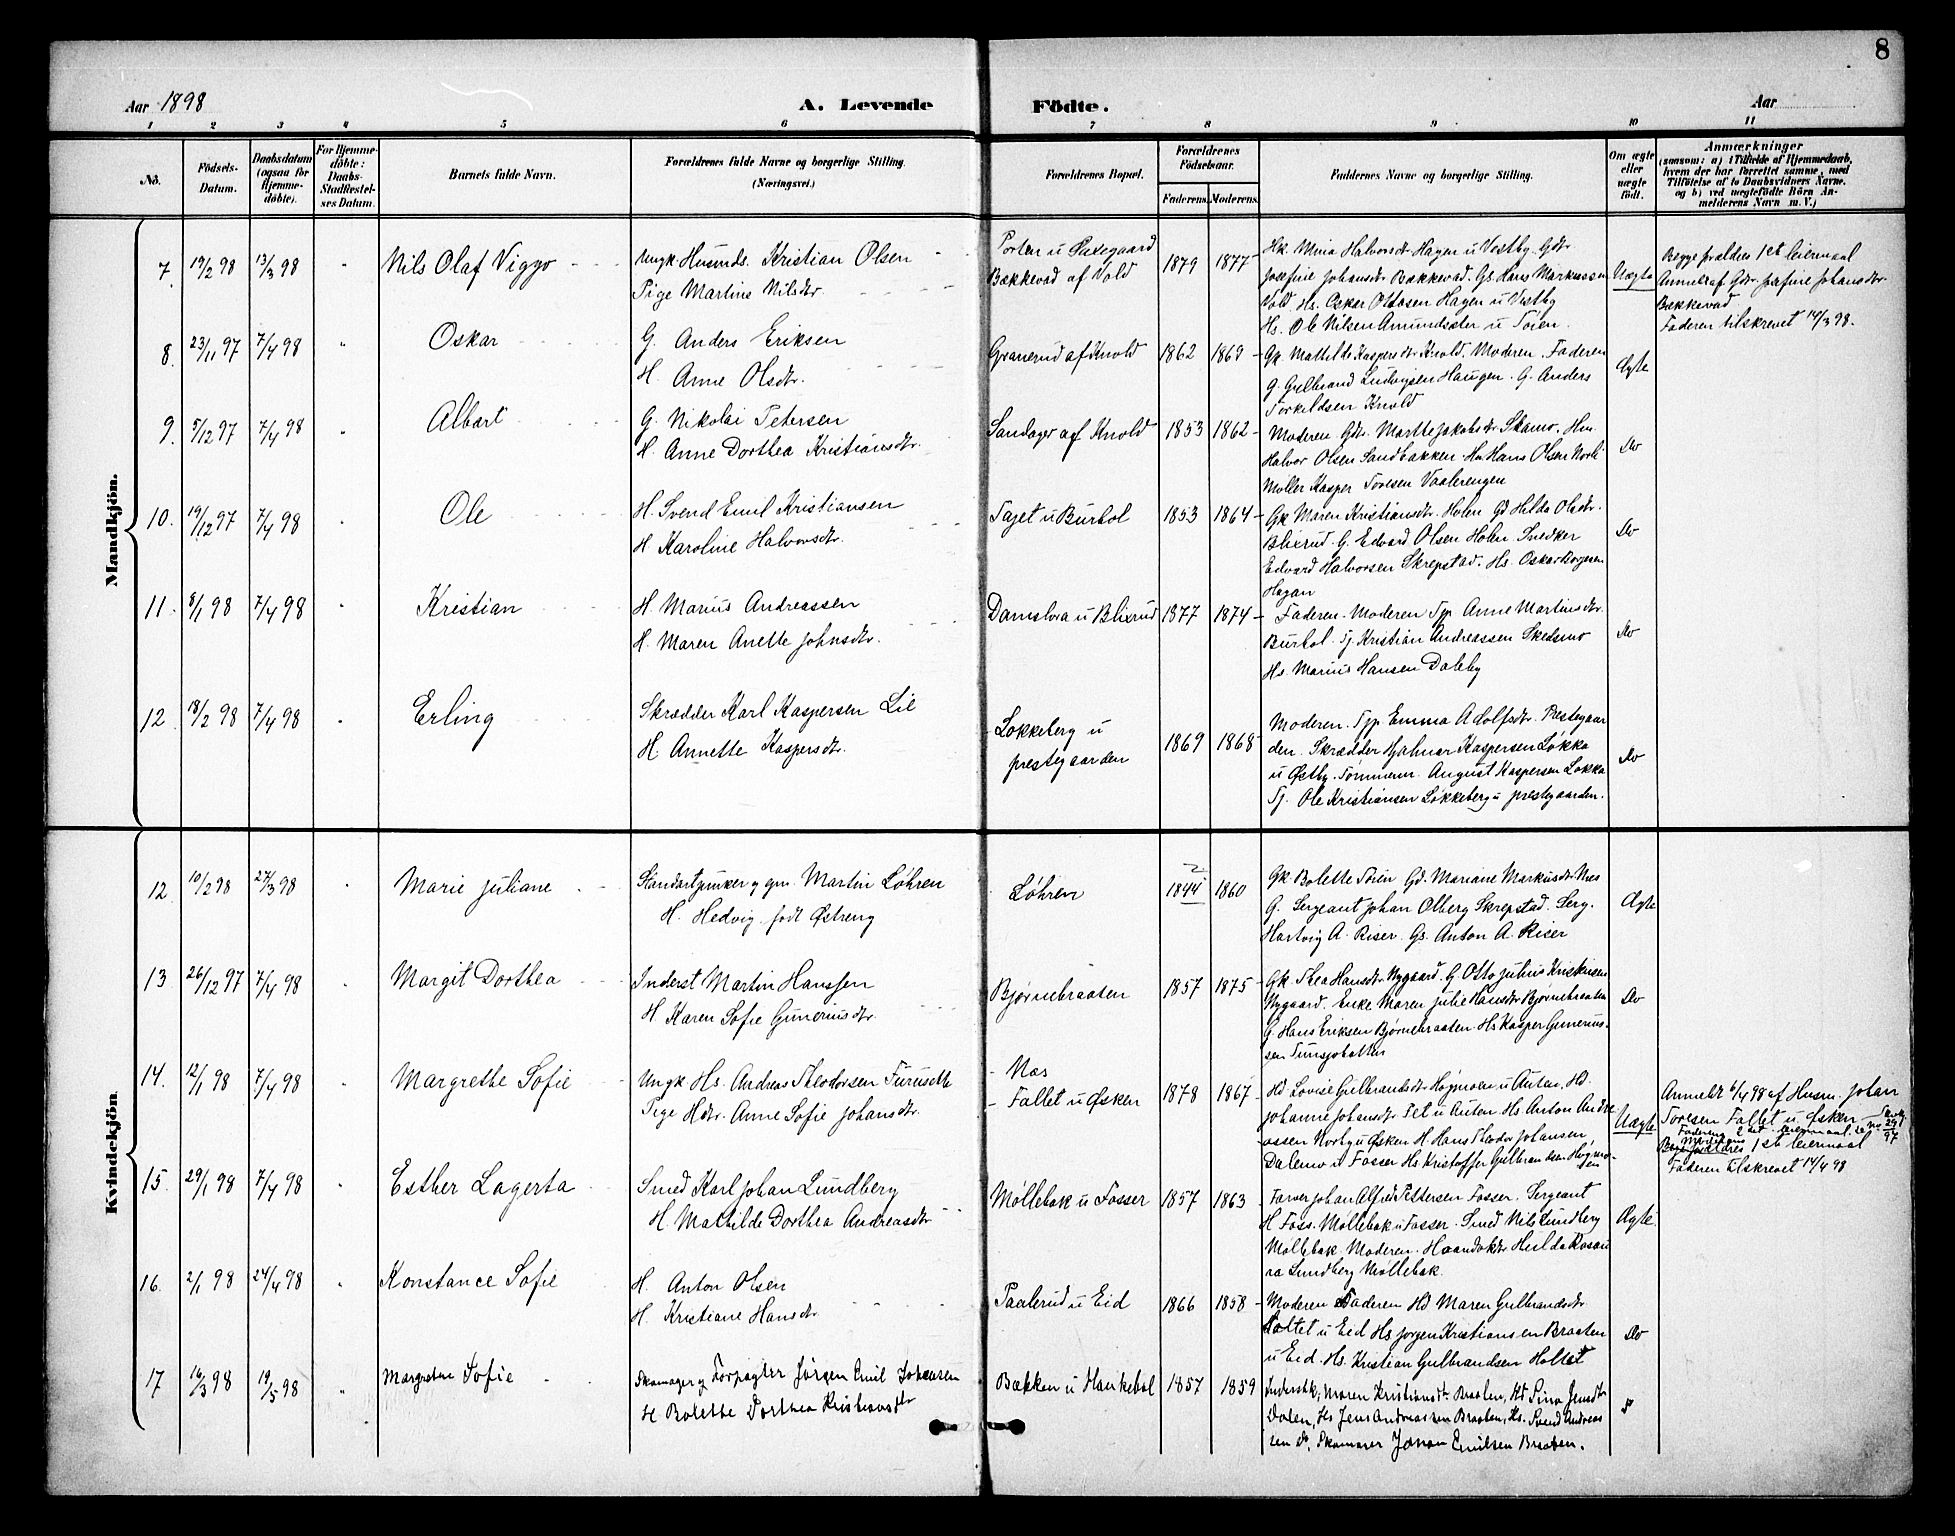 8
Aar 1898
A. Levende
Födte.
Aar
1 2 3 4 5 6 7 8 9 10 11
No.
Födsels-Datum.
Daabsdatum (ogsaa for Hjemme-döbte).
For Hjemme-döbte: Daabs-Stadfæstel-ses Datum.
Barnets fulde Navn.
Forældrenes fulde Navne og borgerlige Stilling. (Næringsvei.)
Forældrenes Bopæl.
Forældrenes Födselsaar.
Faderens. Moderens.
Faddernes Navne og borgerlige Stilling.
Om ægte eller uægte födt.
Anmærkninger
(saasom: a) i Tilfælde af Hjemmedaab,
hvem der har forrettet samme, med
Tilföielse af to Daabsvidners Navne.
og b) ved uægtefödte Börn An-
melderens Navn m. V.)
Mandkjön.
7. 19/2 98 13/3 98 " Nils Olaf Viggo
Ungk Husmds. Kristian Olsen
Pige Martine Nilsdtr.
Porten u Oxegaard
Bækkevad af Vold
1879 1877
Hk. Mina Halvorsdtr Hagen u Vestby. Gdtr
Josefine Johansdtr Bækkevad. Gs. Hans Markussen
Vold Hs. Osker Olausen Hagen u Vestby
Hs. Ole Nilsen Amundsæter u Toien.
Uægte
Begge forældres 1st leiermaal
Anmeldt af Gdtr. Josefine Johansdtr
Bækkevad
Faderen tilskrevet 14/3 98.
8. 23/11 97 7/4 98 " Oskar
G. Anders Eriksen
H. Anne Olsdtr.
Granerud af Knold
1862 1869
Gk. Mathilde Kaspersdtr Knold. Moderen. Faderen
G. Gulbrand Ludvigsen Haugen. G. Anders
Torkildsen Knold
Ægte
9. 5/12 97 7/4 98 " Albert
G. Nikolai Petersen
H. Anne Dorthea Kristiansdtr.
Sandager af Knold
1853 1862
Moderen Gdtr. Marthe Jakobsdtr Skamo. Hm.
Halvor Olsen Sandbakken. Hm Hans Olsen Norli
Møller Kasper Toresen Vaalerengen
Do
10. 19/12 97 7/4 98 " Ole
H. Svend Emil Kristiansen
H Karoline Halvorsdtr.
Tajet u Burhol
1853 1864
Gk Maren Kristiansdtr. Holen Gd Hilda Olsdtr.
Blixrud. G. Edvard Olsen Holen Snedker
Edvard Halvorsen Skrepstad. Hs. Oskar Borgersen
Hagan
Do
11. 8/1 98 7/4 98 " Kristian
H. Marius Andreassen
H. Maren Anette Johnsdtr.
Damslora u Blixrud
1877 1874
Faderen. Moderen Tjp Anne Martinsdtr.
Burhol. Tj. Kristian Andreassen Skedsmo
Hs. Marius Hansen Dalby
Do
12 18/2 98 7/4 98 " Erling
Skrædder Karl Kaspersen Lie
H. Annette Kaspersdtr.
Løkkeberg u
prestegaarden
1869 1868
Moderen. Tjp. Emma Adolfsdtr. Prestegaar
den. Skrædder Hjalmar Kaspersen Løkka
u Østby. Tømmerm. August Kaspersen Løkka
Tj. Ole Kristiansen Løkkeberg u prestegaarden.
Do
Kvindekjön
12 10/2 98 27/3 98 " Marie Juliane
Standartjunker og gm. Martin Løhren
H. Hedvig født Østreng
Løhren
2
1844 1860
Gk Bolette Toien Gd. Mariane Markusdtr Næs
G. Sergeant Johan Olberg Skrepstad. Serg.
Hartvig A. Riser. Gs. Anton A. Riser
Ægte
13 26/12 97 7/4 98 " Margit Dorthea
Inderst Martin Hanssen
H Karen Sofie Gunerius dtr.
Bjørnebraaten
1857 1875
Gk. Thea Hansdtr. Nygaard. G Otto Julius Kristiansen
Nygaard. Enke Maren Julie Hansdtr Bjørnebraaten
G. Hans Eriksen Bjørnebraaten. Hs Kasper Gunerius-
sen Tunsjøhatten
Do
14. 12/1 98 7/4 98 " Margrethe Sofie
Ungk Hs. Andreas Theodorsen Furusette
Pige Hdtr. Anne Sofie Johansdtr.
- Næs
- Fallet u Øsken
1878 1867
Hd Lovise Gulbrandsdtr Høgmoen u Auten. Hd.
Johanne Johansdtr Tet u Auton. Hs. Anton Andre
assen Norby u Øsken H. Hans Theodor Johansen
Dalemo u Fosser Hs Kristoffer Gulbrandsen Høgmo-
en
Uægte
Anmeldt 6/4 98 af Husm. Johan
Toresen Fallet u Øsken
Faderens 2det leiermaal. se No 29/97
Moderens
1ste leiermaal
Faderen tilskrevet 14/4 98
15. 29/1 98 7/4 98 " Esther Lagerta
Smed Karl Johan Lundberg
H. Mathilde Dorthea Andreasdtr
Møllebak u Fosser
1857 1863
Farver Johan Alfred Pettersen Fosser. Sergeant
H Foss. Møllebak u Fosser. Smed Nils Lundberg
Møllebak. Moderen. Haandv.dtr Hilda Rosau
ra Lundberg Møllebak.
Ægte
16. 2/1 98 24/4 98 " Konstance Sofie
H. Anton Olsen
H. Kristiane Hansdtr
Paalerud u Eid
1866 1858
Moderen Faderen Hd Maren Gulbrandsdtr
Holtet u Eid Hs Jørgen Kristiansen Braaten
u Eid. Hs. Kristian Gulbrandsen Holtet
Do
17 16/3 98 19/5 98 " Margrethe Sofie
Skomager og Forpagter Jørgen Emil Johansen
H Bolette Dorthea Kristiansdtr
Bækken u Haukebøl
1857 1859
Inderstk; Maren Kristiansdtr Braaten, Hd Sina Jensdtr
Dalen, Hs Jens Andreassen Braaten, Hs. Svend Andreas
sen Do, Skomager Johan Emilsen Braaten.